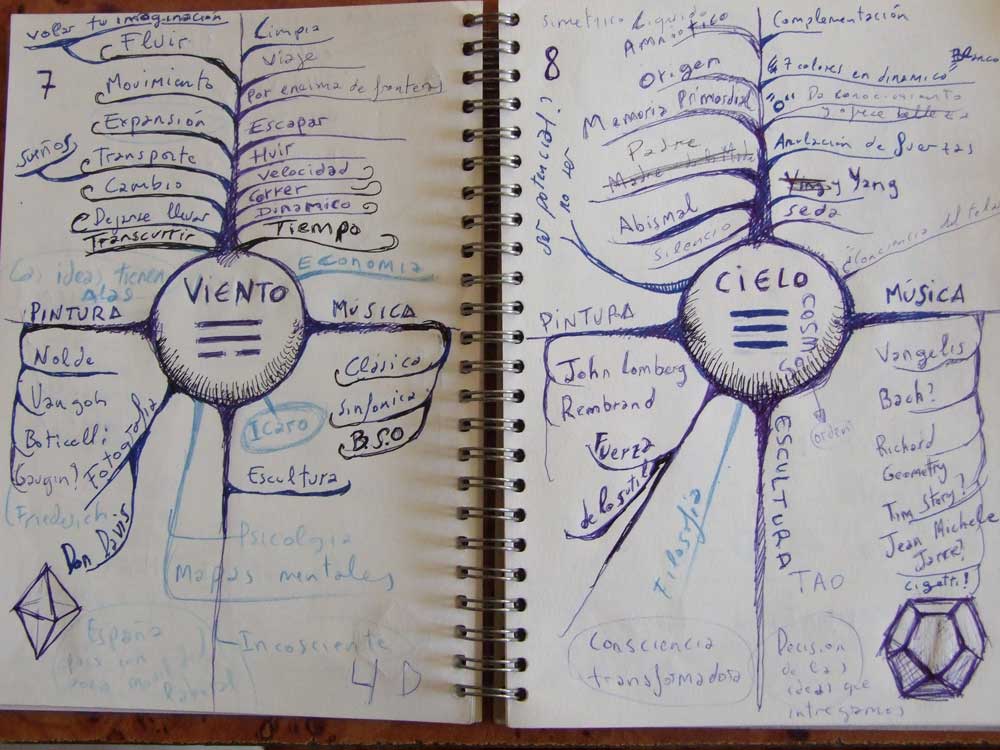 volar tu imaginación
Fluir
7
Movimiento
Expansión
sueños
Transporte
Cambio
Dejarse llevar
Transcurrir
Limpia
Viaje
Por encima de fronteras
Escapar
Huir
Velocidad
Correr
Dinamico
Tiempo
Economia
Las ideas tienen
ALAS
VIENTO
PINTURA
MÚSICA
Nolde
Vangoh
Boticelli
Gaugin?
Friederich
Fotografia
Don Davis
Clásica
Sinfonica
B.S.O
Icaro
Escultura
Psicologia
Mapas mentales
Incosciente
España
4D
simetrico Liquido
Amniotico
8
Origen
Memoria Primordial
Padre
Madre
Abismal
Silencio
Ser potencial?
no ser
Complementación
Blanco
"7 colores en dinamico"
"O" Da conocimiento
y ofrece belleza
Anulación de fuerzas
Ying y Yang
Seda
CIELO
COSMOS
orden
PINTURA
MÚSICA
John Lomberg
Rembrand
Fuerza
de lo sutil
Filosofia
ESCULTURA
TAO
Vangelis
Bach?
Richard
Geometry
Tim Story?
Jean Michele
Jarre?
Ligetti!
Consciencia
transformadora
Decision
de las
ideas que
intregamos